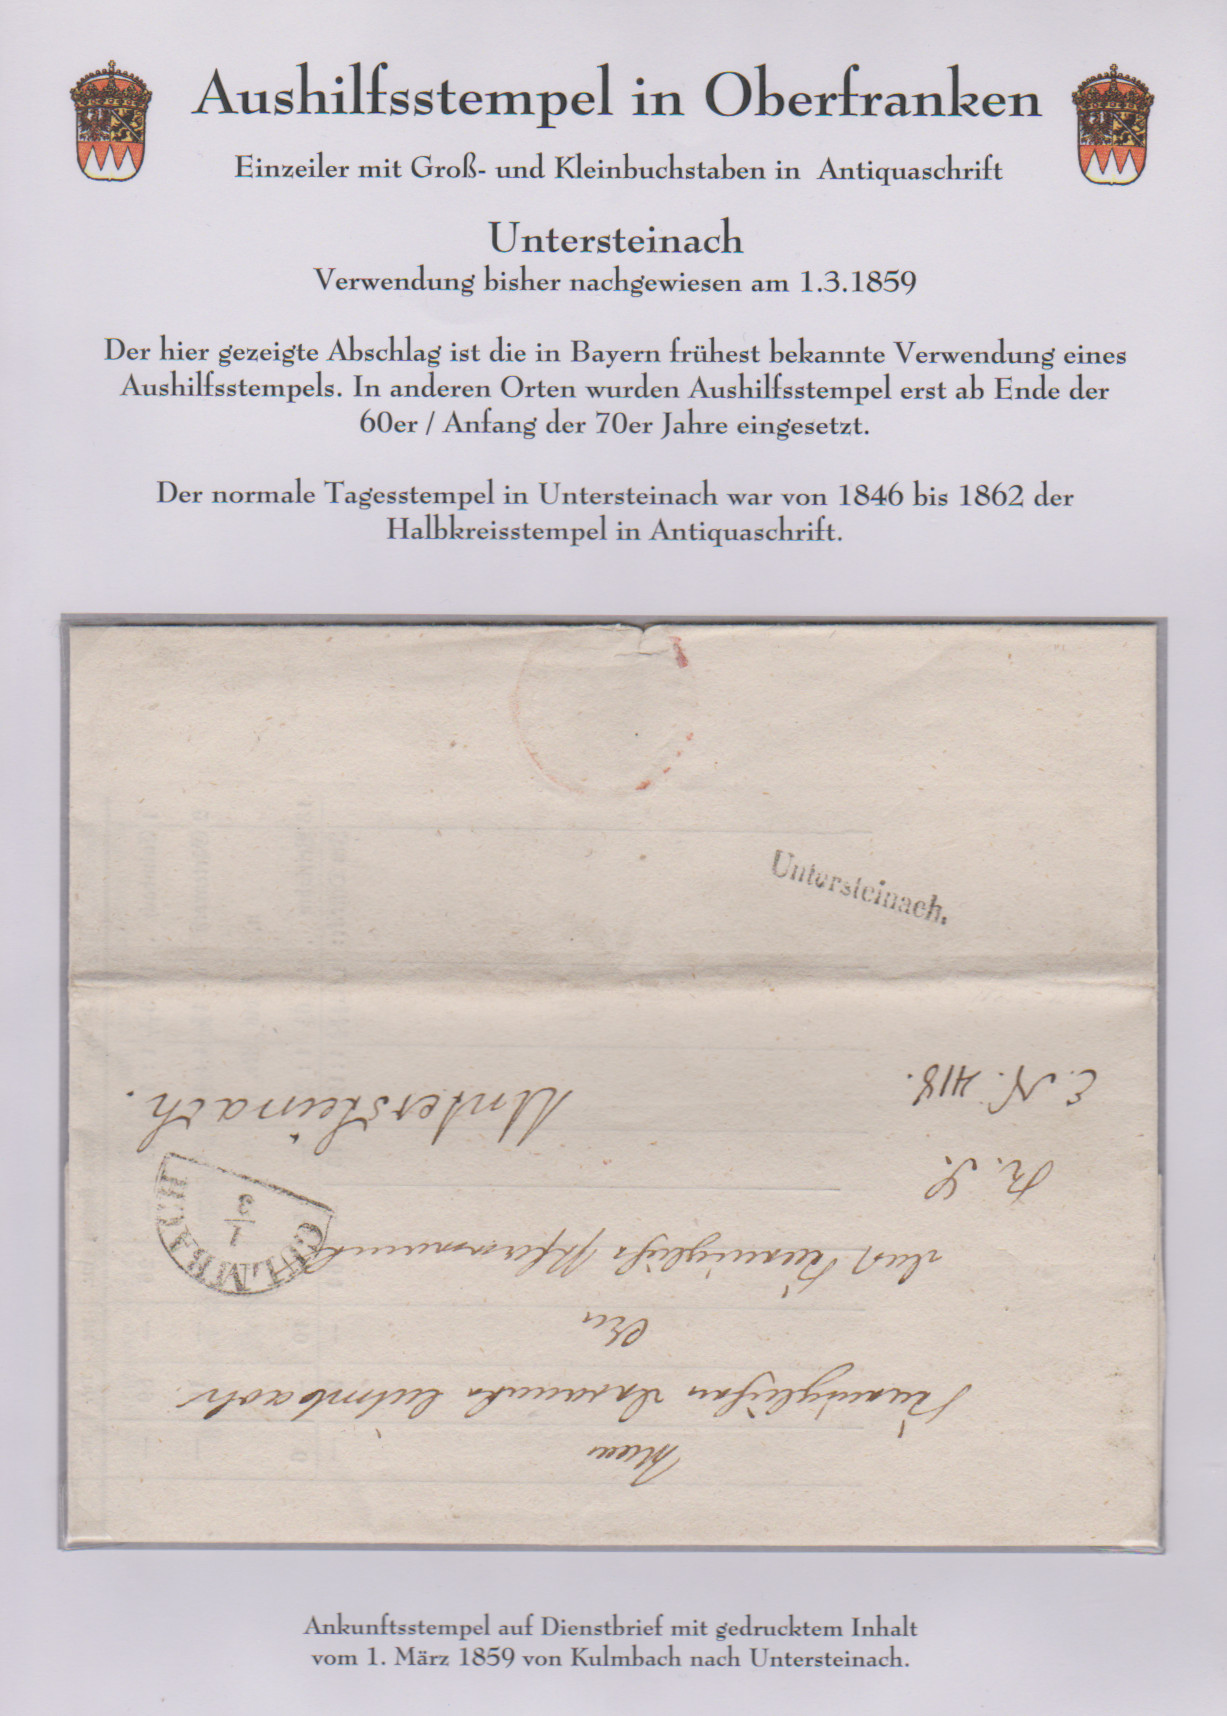 Aushilfsstempel in Oberfranken
Einzeiler mit Groß- und Kleinbuchstaben in Antiquaschrift
Untersteinach
Verwendung bisher nachgewiesen am 1.3.1859
Der hier gezeigte Abschlag ist die in Bayern frühest bekannte Verwendung eines
Aushilfsstempels. In anderen Orten wurden Aushilfsstempel erst ab Ende der
60er / Anfang der 70er Jahre eingesetzt.
Der normale Tagesstempel in Untersteinach war von 1846 bis 1862 der
Halbkreisstempel in Antiquaschrift.
Untersteinach.
Vom
Königlichen Dekanate Culmbach
An
das Königliche Pfarramt
R. S.
E. N. 418.
Untersteinach.
CULMBACH
1/3
Ankunftsstempel auf Dienstbrief mit gedrucktem Inhalt
vom 1. März 1859 von Kulmbach nach Untersteinach.